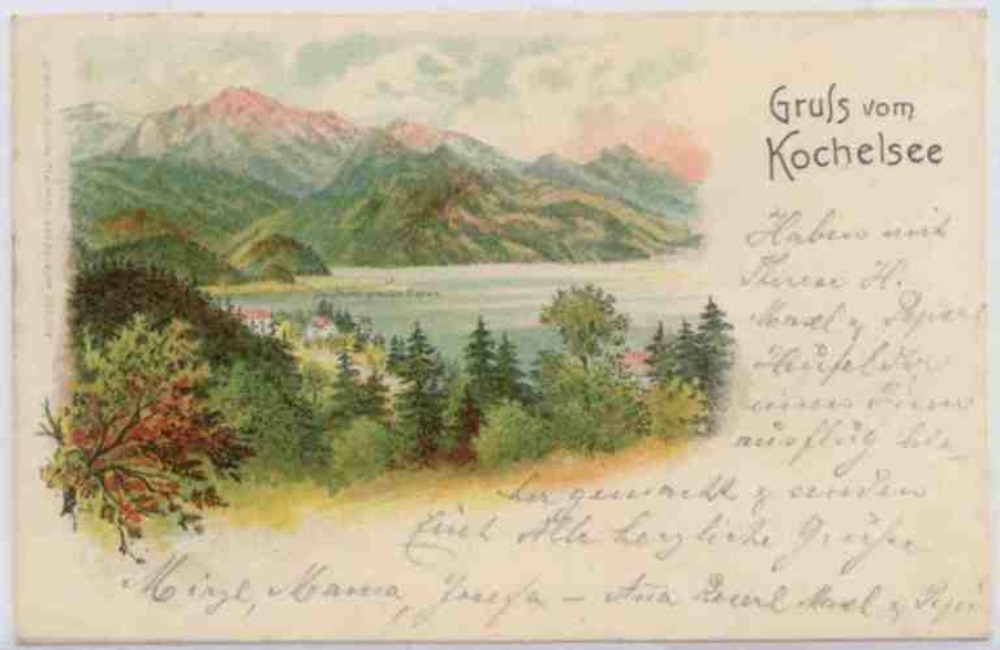 Gruſs vom
Kochelsee
Haben mit
Therese H.
Maxl & Peperl
Heufelder
einen
ausflug hie
her gemacht & senden
Euch Alle herzliche Grüße
Mirzl, Mama, Josefa – Maxl &